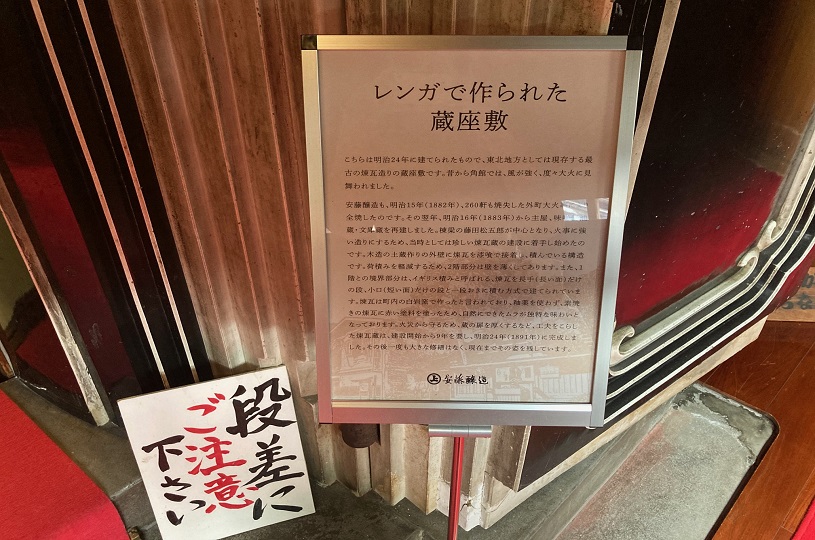 レンガで作られた
蔵座敷
こちらは明治24年に建てられたもので、東北地方としては現存する最
古の煉瓦造りの蔵座敷です。昔から角館では、風が強く、度々大火に見
舞われました。
安藤醸造も、明治15年(1882年)、260軒も焼失した外町大火
全焼したのです。その翌年、明治16年(1883年)から主屋、味
蔵・文庫蔵を再建しました。棟梁の藤田松五郎が中心となり、火事に強
い造りにするため、当時としては珍しい煉瓦蔵の建設に着手し始めたの
です。木造の土蔵作りの外壁に煉瓦を漆喰で接着し、積んでいる構造
です。荷積みを軽減するため、2階部分は壁を薄くしてあります。また、1
階との境界部分は、イギリス積みと呼ばれる、煉瓦を長手(長い面)だけ
の段、小口(短い面)だけの段と一段おきに積む方式で建てられていま
す。煉瓦は町内の白岩窯で作ったと言われており、釉薬を使わず、素焼
きの煉瓦に赤い塗料を塗ったため、自然にできたムラが独特な味わいと
なっております。火災から守るため、蔵の扉を厚くするなど、工夫をこらし
た煉瓦蔵は、建設開始から9年を要し、明治24年(1891年)に完成しま
した。その後一度も大きな修繕はなく、現在までその姿を残しています。
上 安藤醸造
段差に
ご注意
下さい